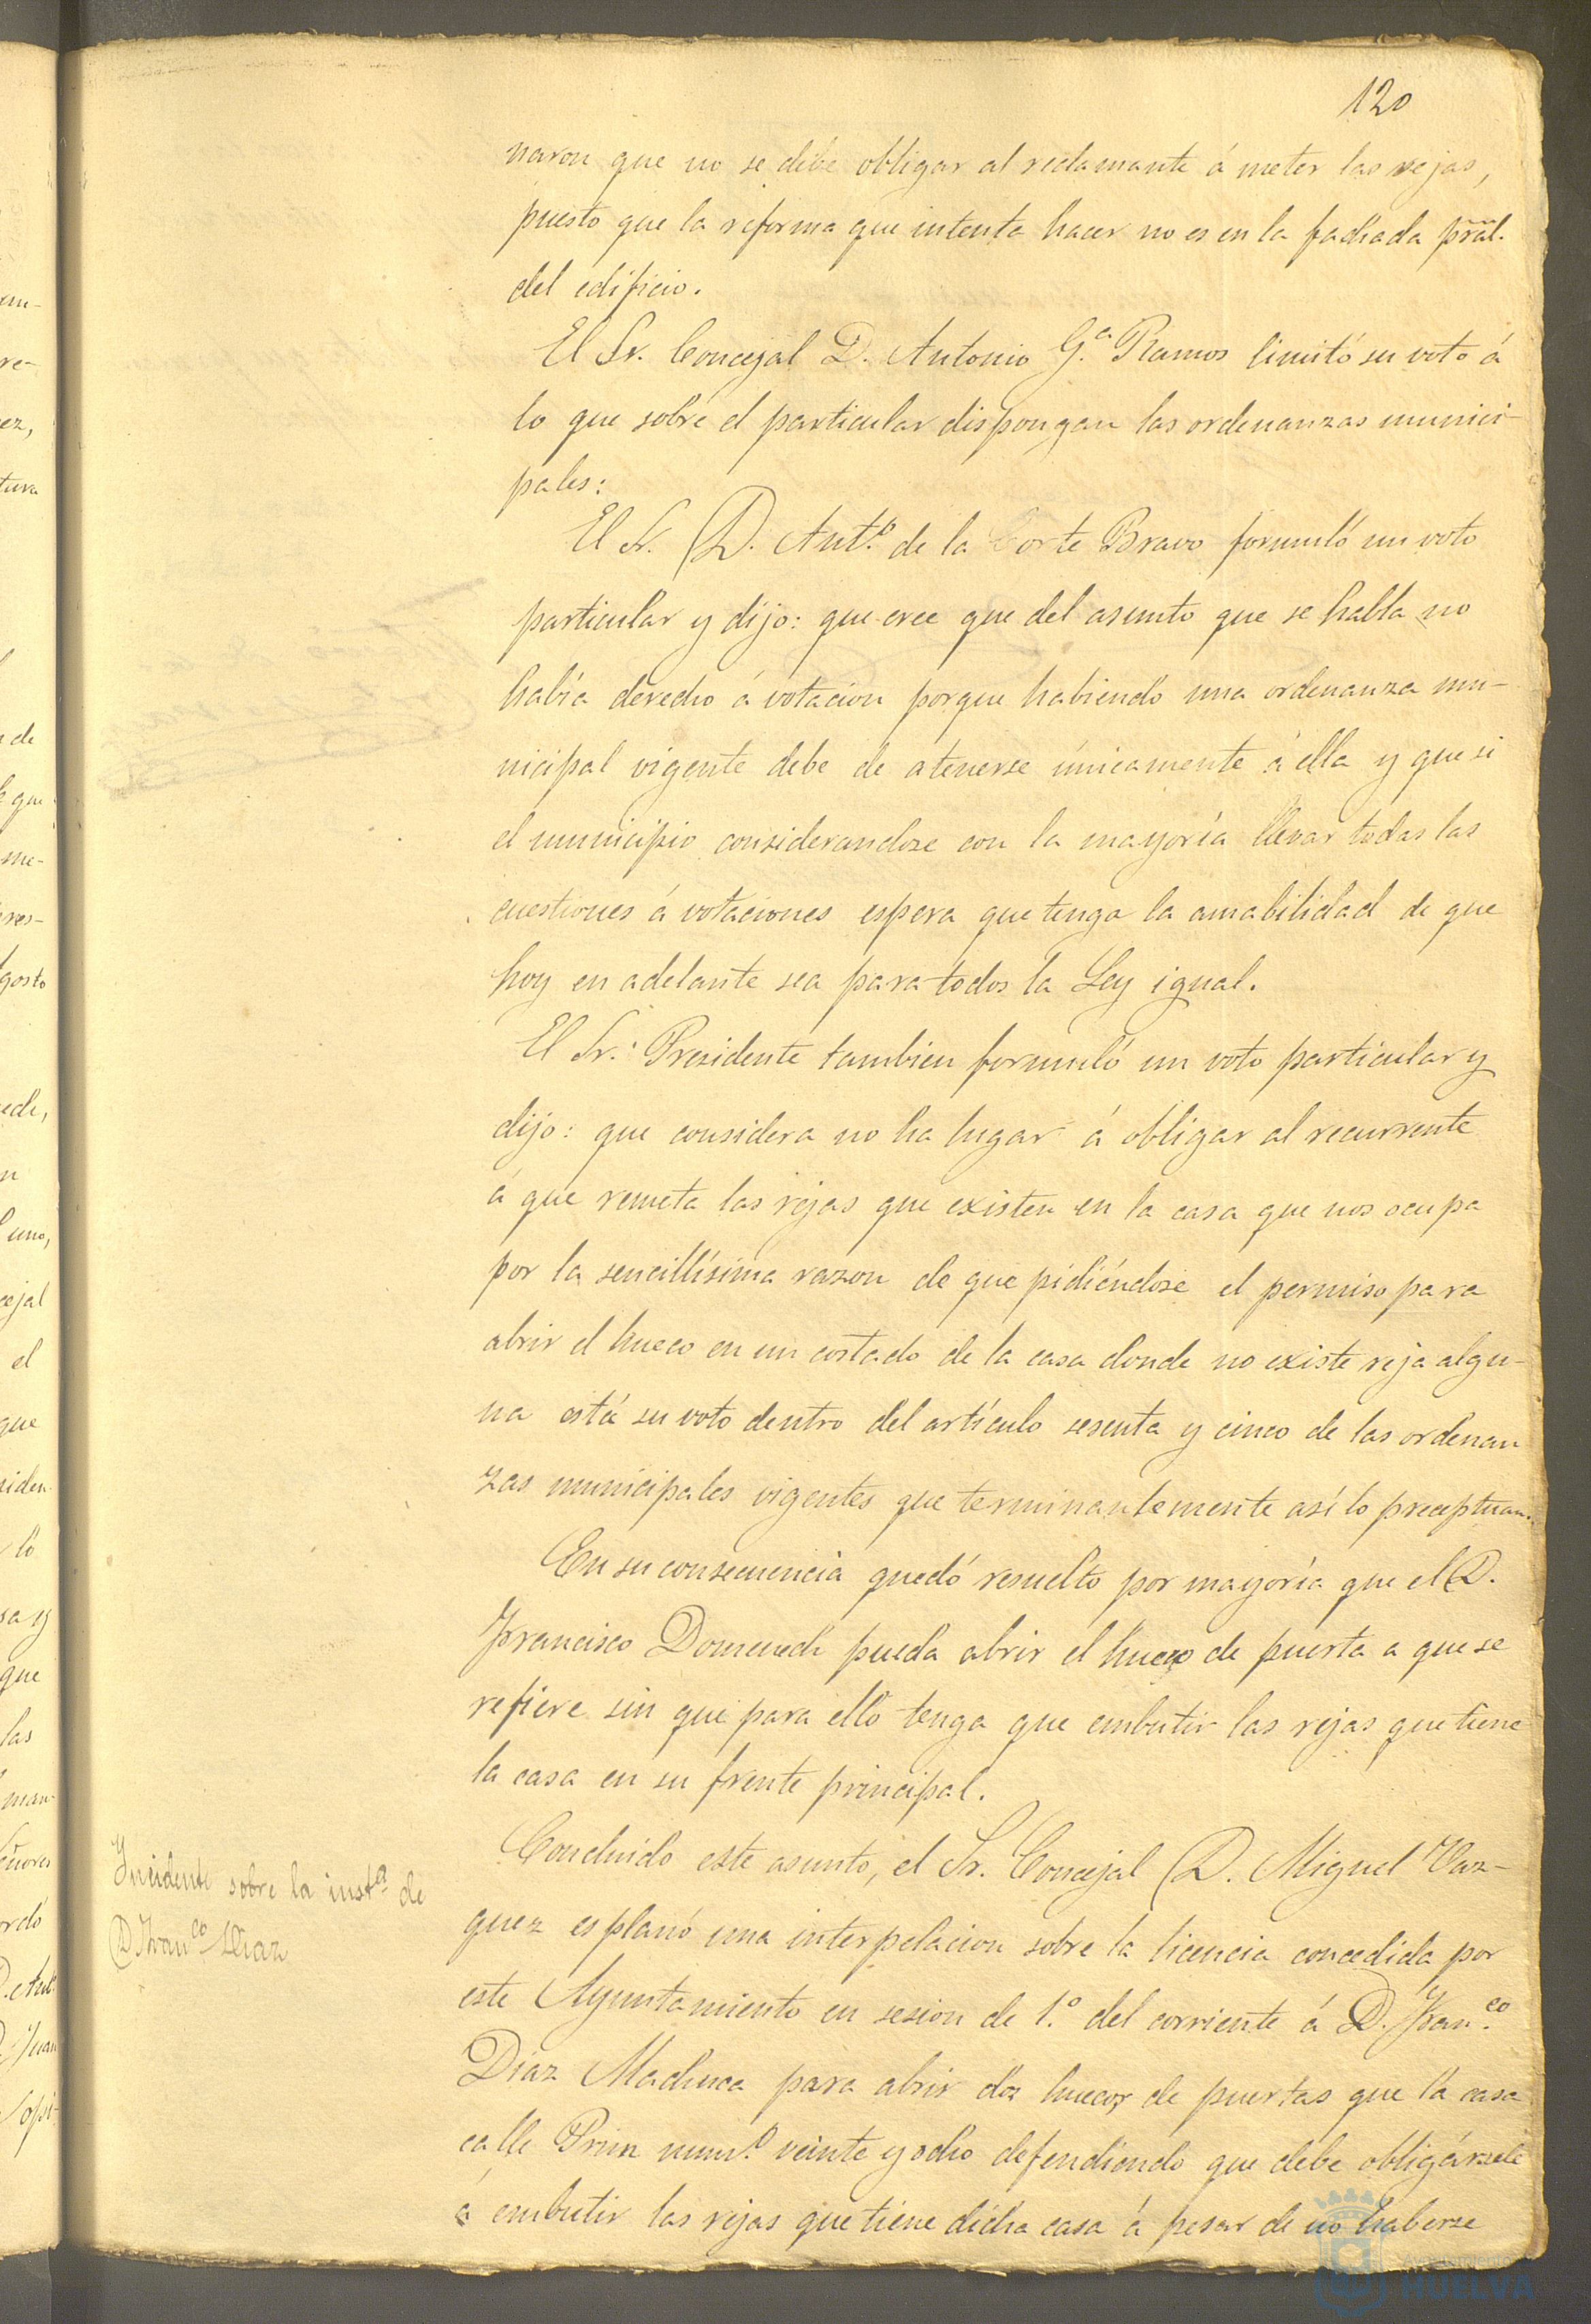 120
naron que no se debe obligar al reclamante á meter las rejas,
puesto que la reforma que intenta hacer no es en la fachada pral.
del edificio.
El Sr. Concejal D. Antonio G.ª Ramos limitó su voto á
lo que sobre el particular dispongan las ordenanzas munici-
pales:
El Sr. D. Ant.º de la Corte Bravo formuló un voto
particular y dijo: que cree que del asunto que se habla no
había derecho á votacion porque habiendo una ordenanza mu-
nicipal vigente debe de atenerse únicamente á ella y que si
el municipio considerandose con la mayoría llevar todas las
cuestiones á votaciones espera que tenga la amabilidad de que
hoy en adelante sea para todos la Ley igual.
El Sr. Presidente tambien formuló un voto particular y
dijo: que considera no ha lugar á obligar al recurrente
á que remeta las rejas que existen en la casa que nos ocupa
por la sencillísima razon de que pidiéndose el permiso para
abrir el hueco en un costado de la casa donde no existe reja algu-
na está su voto dentro del artículo sesenta y cinco de las ordenan
zas municipales vigentes que terminantemente así lo preceptuan.
En su consecuencia quedó resuelto por mayoría que el D.
Francisco Domenech pueda abrir el hueco de puerta a que se
refiere sin que para ello tenga que embutir las rejas que tiene
la casa en su frente principal.
Incidente sobre la inst.ª de
D. Fran.co Diaz
Concluido este asunto, el Sr. Concejal D. Miguel Vaz-
quez esplanó una interpelacion sobre la licencia concedida por
este Ayuntamiento en sesion de 1.º del corriente á D. Fran.co
Diaz Machuca para abrir dos huecos de puertas que la casa
calle Prim num.º veinte y ocho defendiendo que debe obligársele
á embutir las rejas que tiene dicha casa á pesar de no haberse
Ayuntamiento
HUELVA